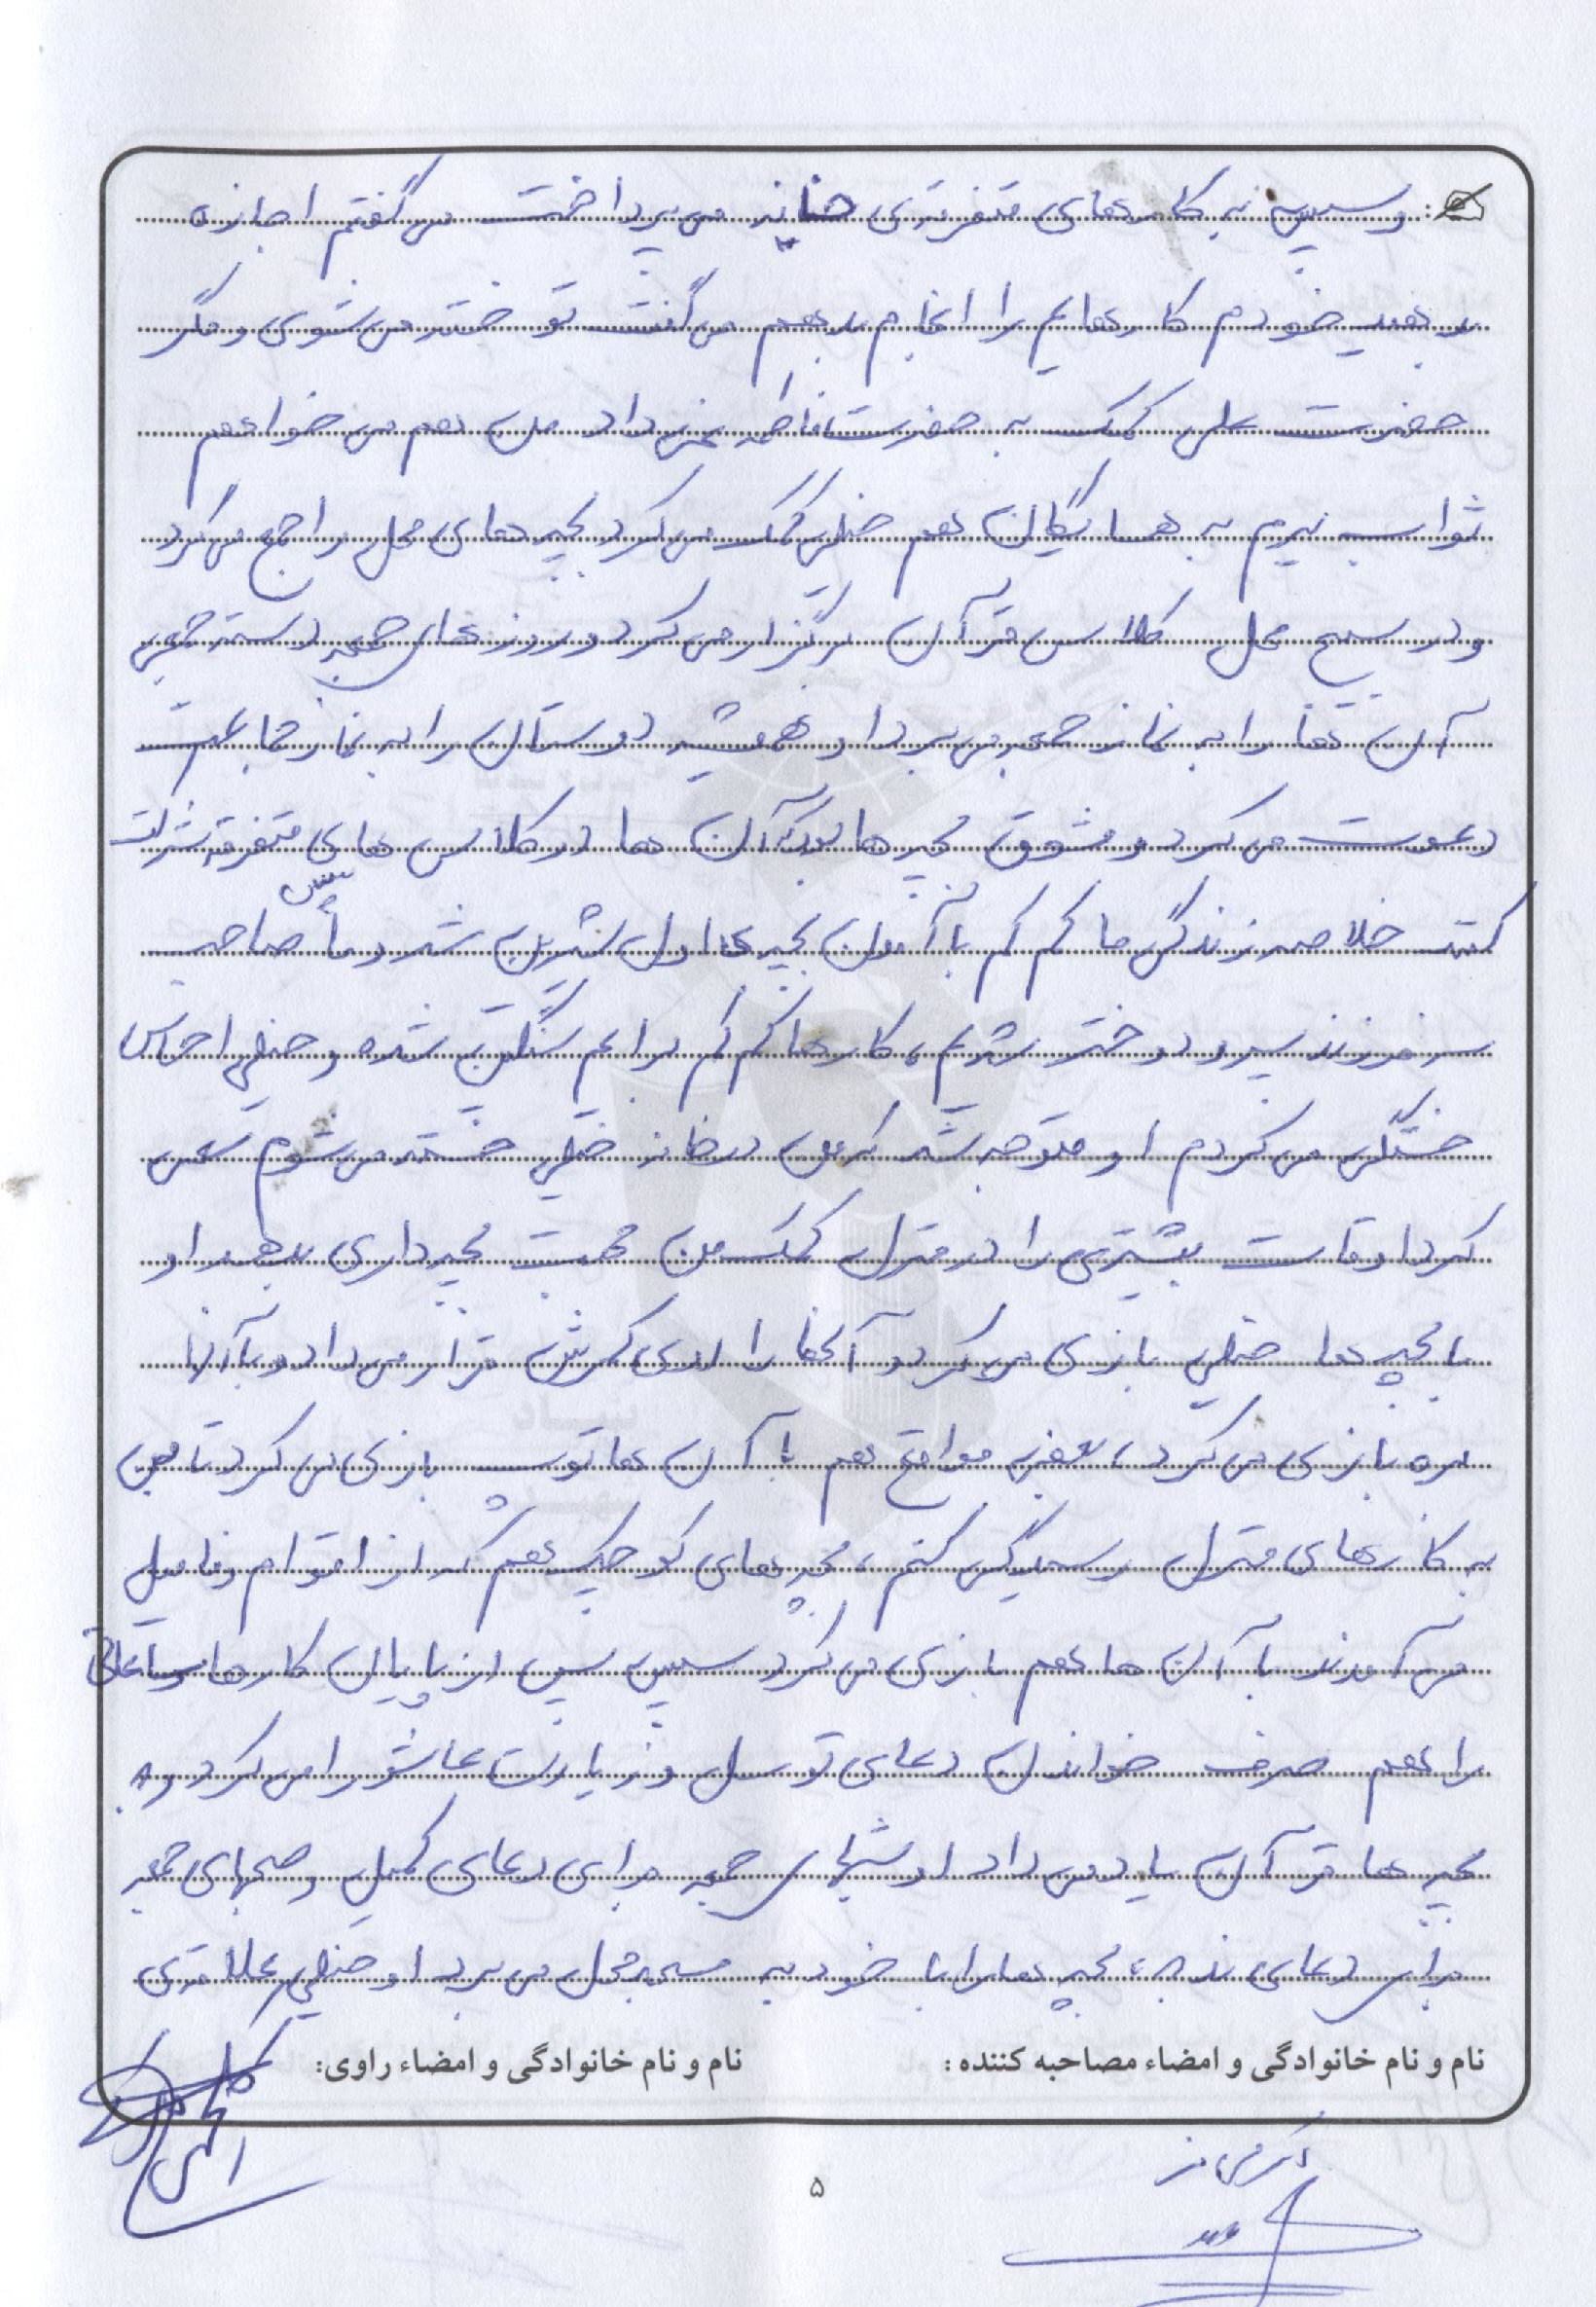 و سپس به کارهای متفرقه‌ی خانه می پرداخت می گفتم اجازه
بدهید خودم کارهایم را انجام بدهم می گفت تو خسته می شوی و مگر
حضرت علی کمک به حضرت فاطمه نمی داد من هم می خواهم
ثواب ببرم به همسایگان هم خیلی کمک می کرد بچه های محل را جمع می کرد
و در بسیج محل کلاس قرآن برگزار می کرد و روزهای جمعه دسته جمعی
آن ها را به نماز جمعه می برد او همیشه دوستان را به نماز جماعت
دعوت می کرد و مشوق بچه ها بود که آن ها در کلاس های متفرقه شرکت
کنند خلاصه زندگی ما کم کم با آمدن بچه ها اول شیرین شد و ما صاحب
سه فرزند پسر و دختر شدیم، کارها کم کم برایم سنگین شده و خیلی احساس
خستگی می کردم او متوجه شد که من در خانه خیلی خسته می شوم سعی
کرد اوقات بیشتری را در منزل کمک من جهت بچه داری بدهد او
با بچه ها خیلی بازی می کرد و آنها را روی کمرش قرار می داد و با آنها
بره بازی می کرد، بعضی مواقع هم با آن ها توپ بازی می کرد تا من
به کارهای منزل رسیدگی کنم، بچه های کوچک هم که از اقوام و فامیل
می آمدند با آن ها هم بازی می کرد سپس پس از پایان کارها ساعاتی
را هم صرف خواندن دعای توسل و زیارت عاشورا می کرد و به
بچه ها قرآن یاد می داد او شبهای جمعه برای دعای کمیل و صبحهای جمعه
برای دعای ندبه، بچه ها را با خود به مسجد محل می برد او خیلی علاقه‌ی
نام و نام خانوادگی و امضاء مصاحبه کننده :
نام و نام خانوادگی و امضاء راوی:
۵